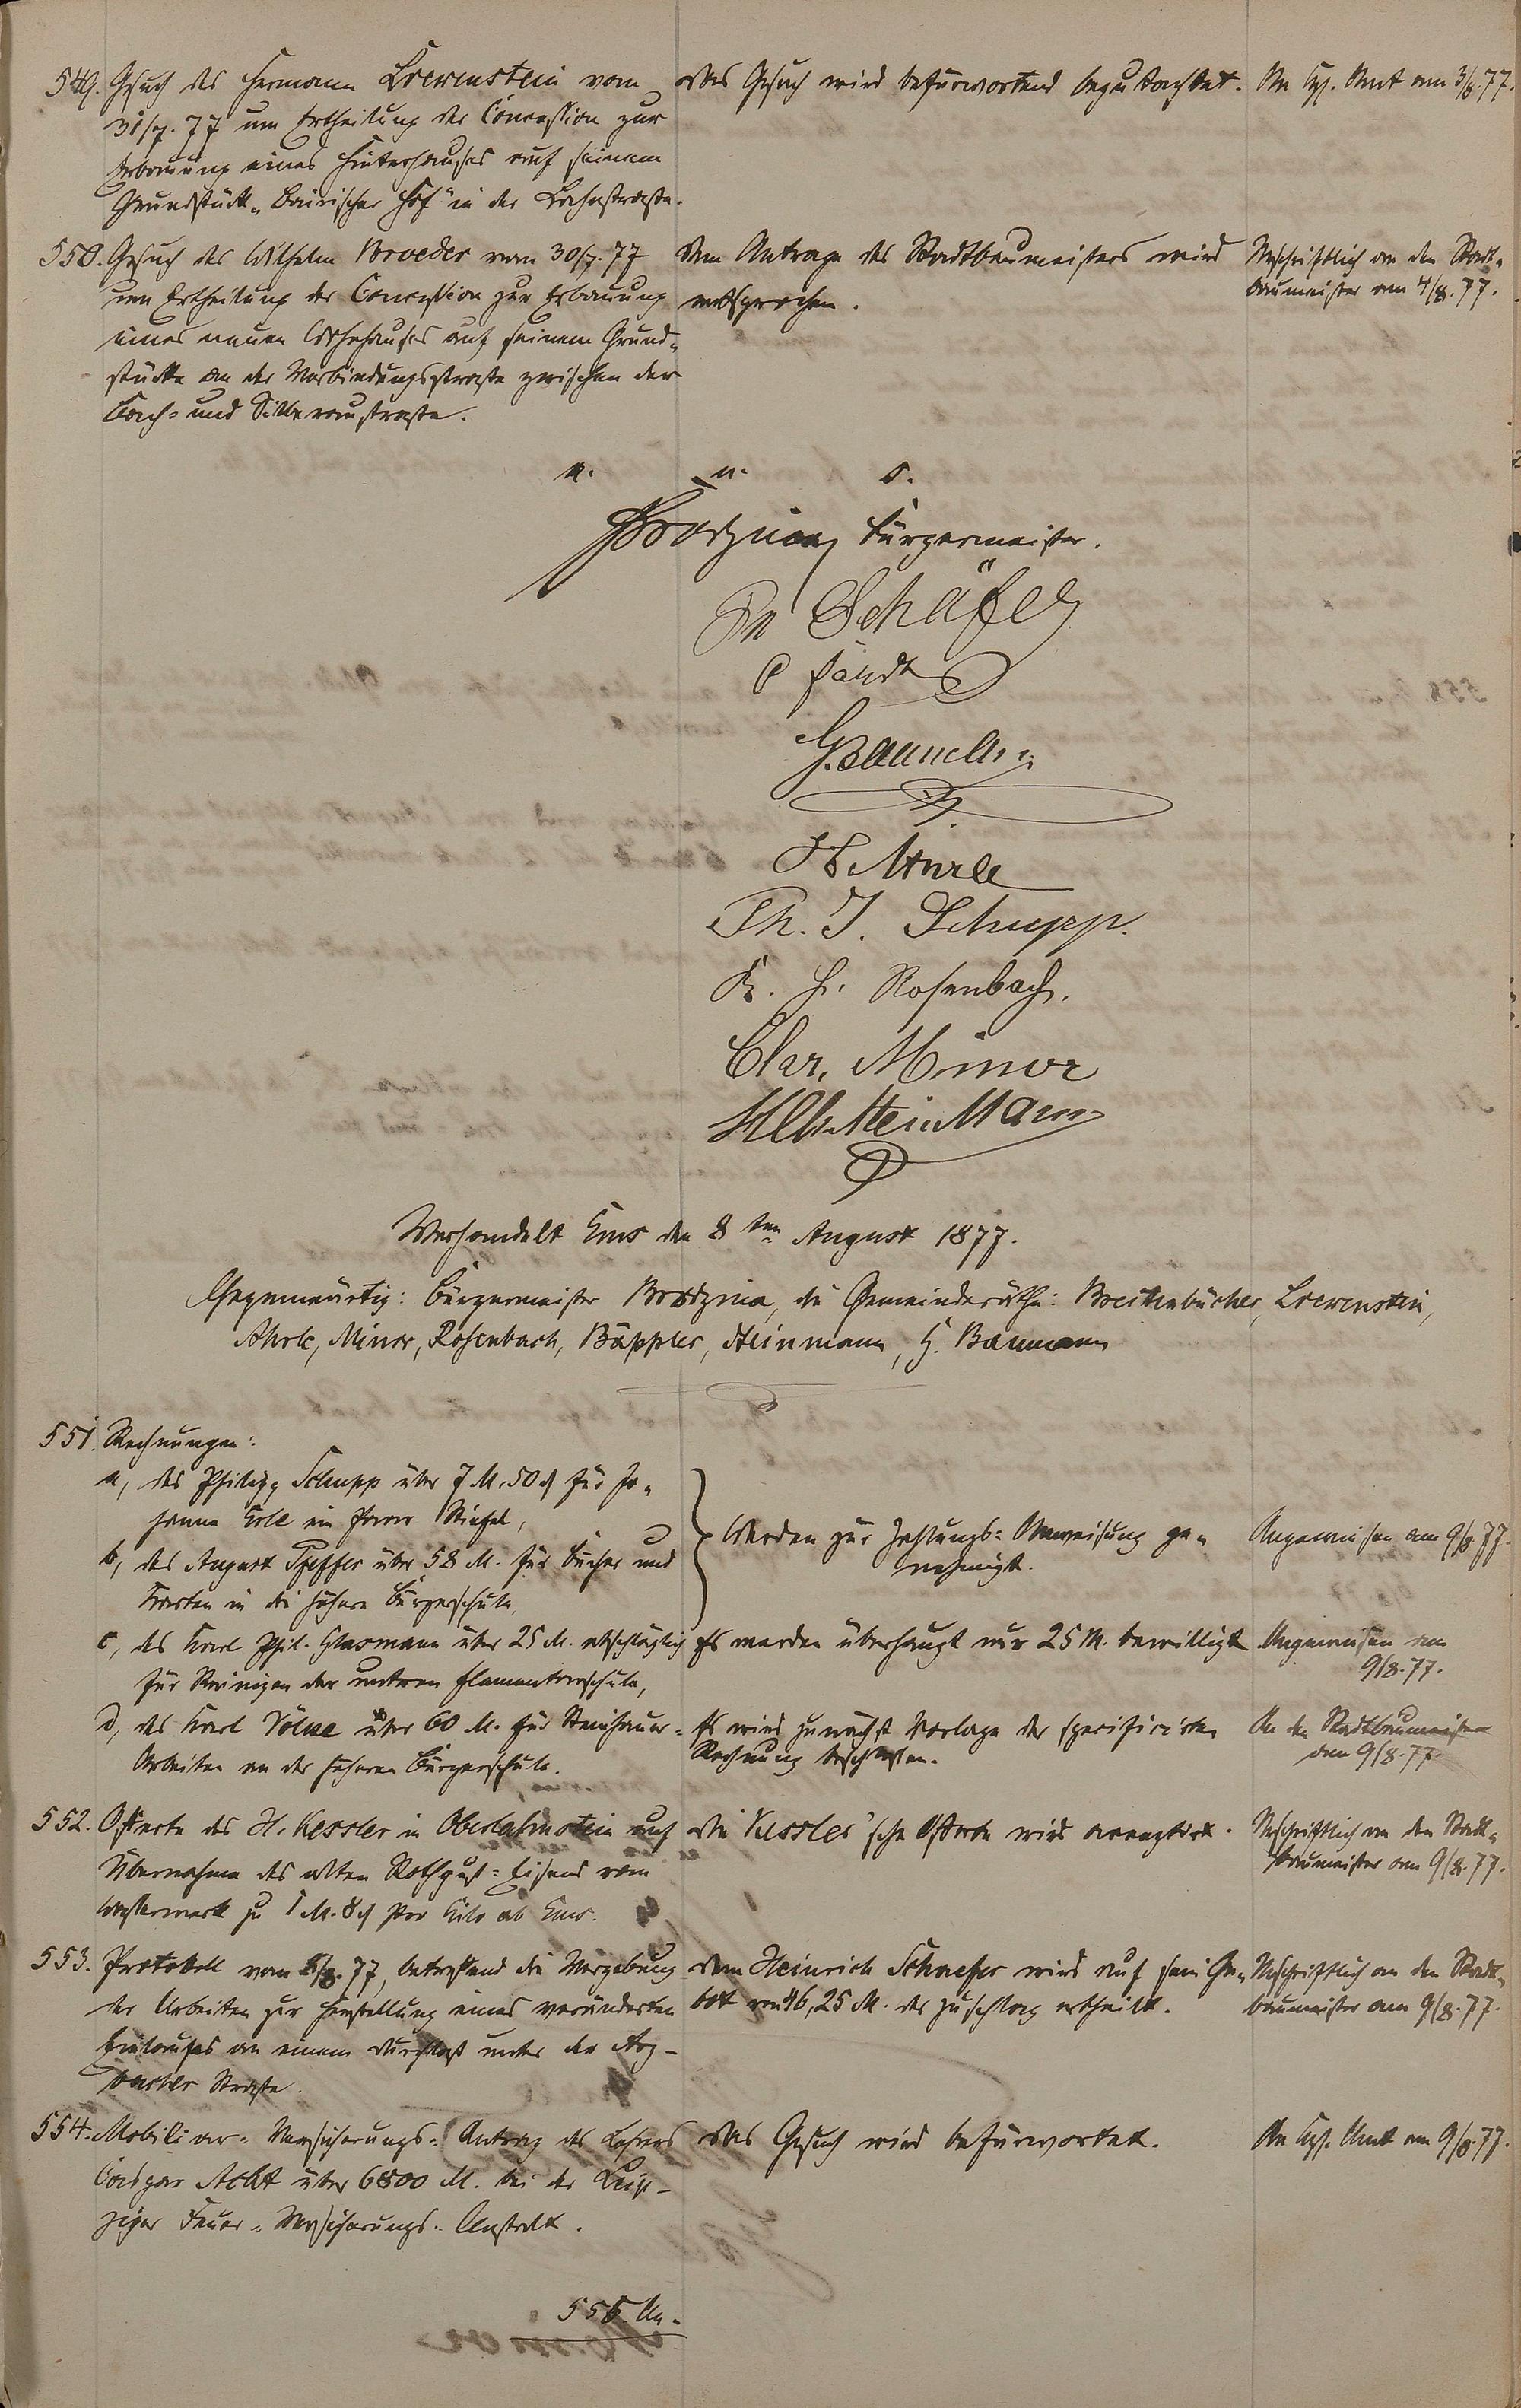 549. Gesuch des Hermann Loewenstein vom
31/7.77 um Ertheilung der Concession zur
Erbauung eines Hinterhauses auf seinem
Grundstück „Bairischer Hof" in der Lahnstraße.
Das Gesuch wird befürwortend begutachtet.
An Kgl. Amt am 3/8.77.
550. Gesuch des Wilhelm Broeder vom 30/7.77
um Ertheilung der Concession zur Erbauung
eines neuen Wohnhauses auf seinem Grund-
stücke an der Verbindungsstraße zwischen der
Bach- und Silberaustraße.
Dem Antrage des Stadtbaumeisters wird
entsprochen.
Urschriftlich an den Stadt-
baumeister am 4/8.77.
a. u. s.
Brodzina Bürgermeister.
Schäfer
G. Baumann
H Ahrle
Ph. J. Schupp.
K. H. Rosenbach.
Chr. Minor
Steinmann
Verhandelt Ems den 8ten August 1877.
Gegenwärtig: Bürgermeister Brodzina, die Gemeinderäthe: Breitenbücher, Loewenstein,
Ahrle, Minor, Rosenbach, Bäppler, Steinmann, G. Baumann
551. Rechnungen:
a, des Philipp Schupp über 7 M. 50 ₰ für Jo-
hanna Erle ein Paar Stiefel,
b, des August Pfeffer über 58 M. für Bücher und
Karten in die höhere Bürgerschule,
Werden zur Zahlungs-Anweisung ge-
nehmigt.
Angewiesen am 9/8.77.
c, des Karl Phil. Glasmann über 25 M. abschläglich
für Reinigen der unteren Elementarschule,
Es werden überhaupt nur 25 M. bewilligt
Angewiesen am
9/8.77.
d, des Karl Völke über 60 M. für Steinhauer-
Arbeiten an der höheren Bürgerschule.
Es wird zunächst Vorlage der specificirten
Rechnung beschlossen.
An den Stadtbaumeister
den 9/8.77.
552. Offerte des H. Kessler in Oberlahnstein auf
Übernahme des alten Rothguß-Eisens vom
Wasserwerk zu 1 M. 8 ₰ pro Kilo ab Ems.
Die Kessler'sche Offerte wird acceptirt.
Urschriftlich an den Stadt-
baumeister am 9/8.77.
553. Protokoll vom 5/8.77, betreffend die Vergebung
der Arbeiten zur Herstellung eines veränderten
Einlaufes an einem Durchlaß unter der Arz-
bacher Straße.
Dem Heinrich Schaefer wird auf sein Ge-
bot von 46,25 M. der Zuschlag ertheilt.
Urschriftlich an den Stadt-
baumeister am 9/8.77.
554. Mobiliar-Versicherungs-Antrag des Lehrers
Caspar Acht über 6800 M. bei der Leip-
ziger Feuer-Versicherungs-Anstalt.
Das Gesuch wird befürwortet.
An Kgl. Amt am 9/8.77.
555. An-